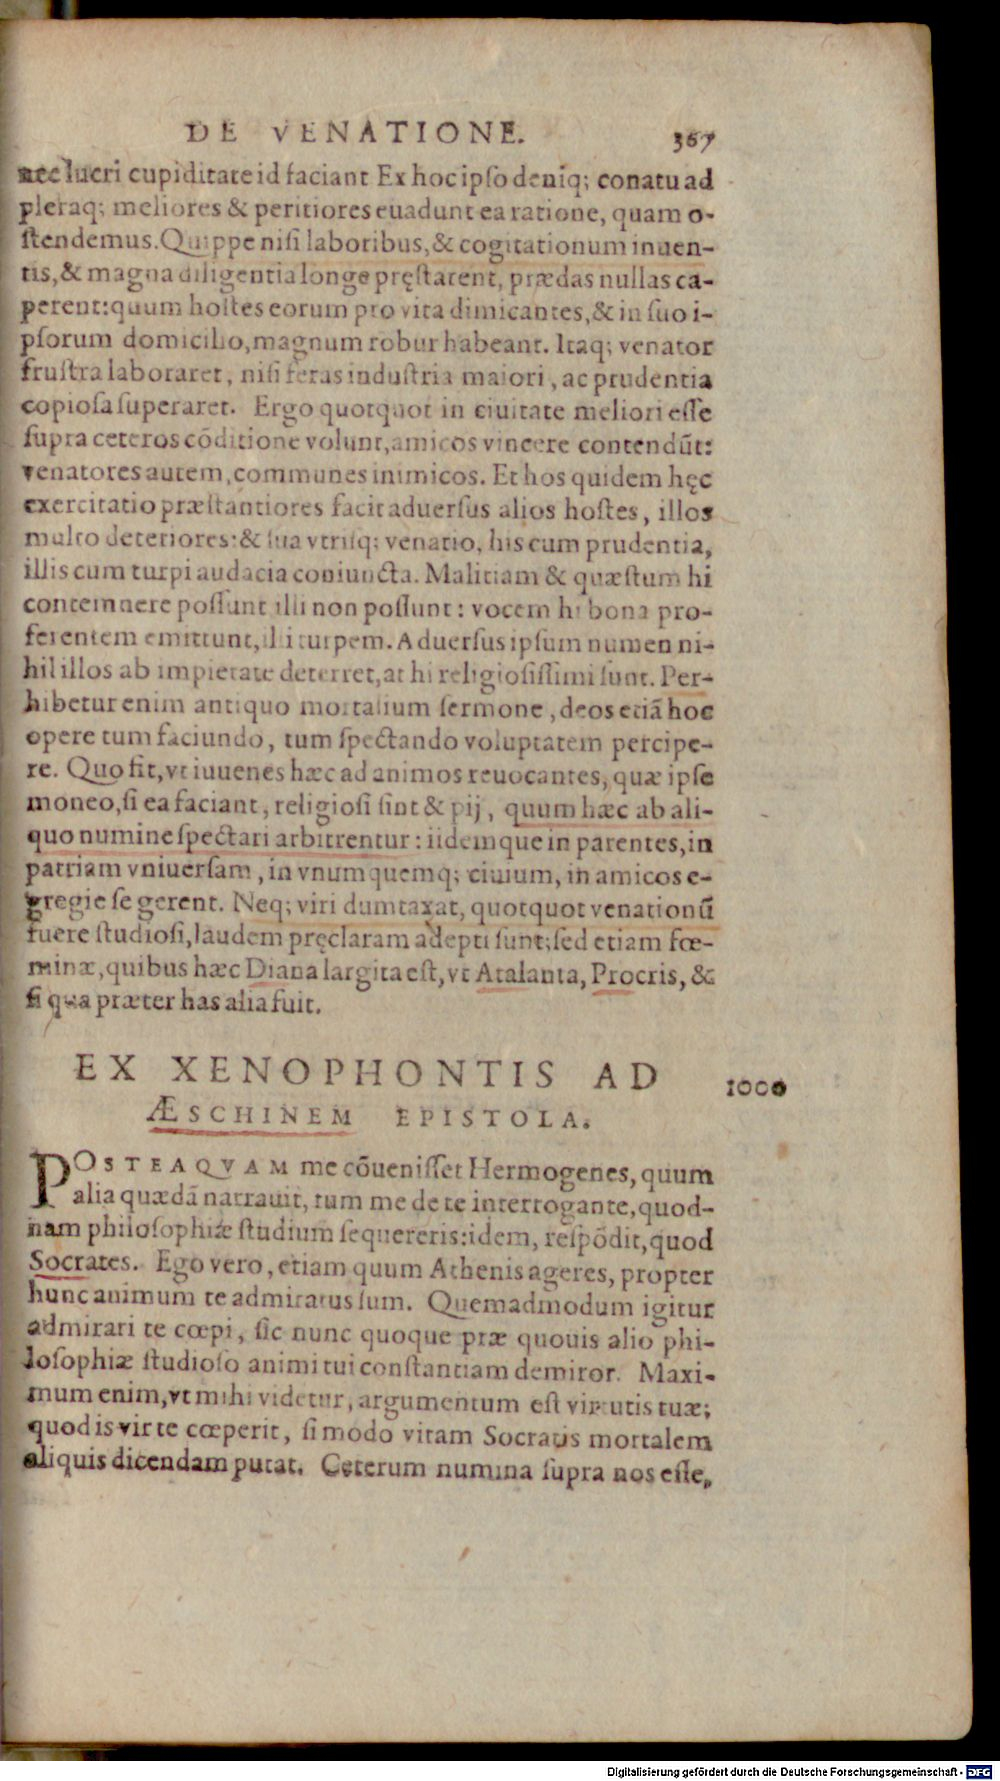 DE VENATIONE. 367
nec lucri cupiditate id faciant Ex hoc ipso deniq; conatu ad
pleraq; meliores & peritiores euadunt ea ratione, quam o-
ſtendemus. Quippe niſi laboribus, & cogitationum inuen-
tis, & magna diligentia longe pręſtarent, prædas nullas ca-
perent: quum hoſtes eorum pro vita dimicantes, & in ſuo i-
pſorum domicilio, magnum robur habeant. Itaq; venator
fruſtra laboraret, niſi feras induſtria maiori, ac prudentia
copioſa ſuperaret. Ergo quotquot in ciuitate meliori eſſe
ſupra ceteros cõditione volunt, amicos vincere contendũt:
venatores autem, communes inimicos. Et hos quidem hęc
exercitatio præſtantiores facit aduerſus alios hoſtes, illos
multo deteriores: & ſua vtriſq; venatio, his cum prudentia,
illis cum turpi audacia coniuncta. Malitiam & quæſtum hi
contemnere poſſunt illi non poſſunt: vocem hi bona pro-
ferentem emittunt, illi turpem. Aduerſus ipſum numen ni-
hil illos ab impietate deterret, at hi religioſiſſimi ſunt. Per-
hibetur enim antiquo mortalium ſermone, deos etiã hoc
opere tum faciundo, tum ſpectando voluptatem percipe-
re. Quo fit, vt iuuenes hæc ad animos reuocantes, quæ ipſe
moneo, ſi ea faciant, religioſi ſint & pij, quum hæc ab ali-
quo numine ſpectari arbitrentur: iidemque in parentes, in
patriam vniuerſam, in vnumquemq; ciuium, in amicos e-
gregie ſe gerent. Neq; viri dumtaxat, quotquot venationũ
fuere ſtudioſi, laudem pręclaram adepti ſunt; ſed etiam fœ-
minæ, quibus hæc Diana largita eſt, vt Atalanta, Procris, &
ſi qua præter has alia fuit.
EX XENOPHONTIS AD 1000
ÆSCHINEM EPISTOLA.
POSTEAQVAM me cõueniſſet Hermogenes, quum
alia quædã narrauit, tum me de te interrogante, quod-
nam philoſophiæ ſtudium ſequereris: idem, reſpõdit, quod
Socrates. Ego vero, etiam quum Athenis ageres, propter
hunc animum te admiratus ſum. Quemadmodum igitur
admirari te cœpi, ſic nunc quoque præ quouis alio phi-
loſophiæ ſtudioſo animi tui conſtantiam demiror. Maxi-
mum enim, vt mihi videtur, argumentum eſt virtutis tuæ;
quod is vir te cœperit, ſi modo vitam Socratis mortalem
aliquis dicendam putat. Ceterum numina ſupra nos eſſe,
Digitalisierung gefördert durch die Deutsche Forschungsgemeinschaft - DFG